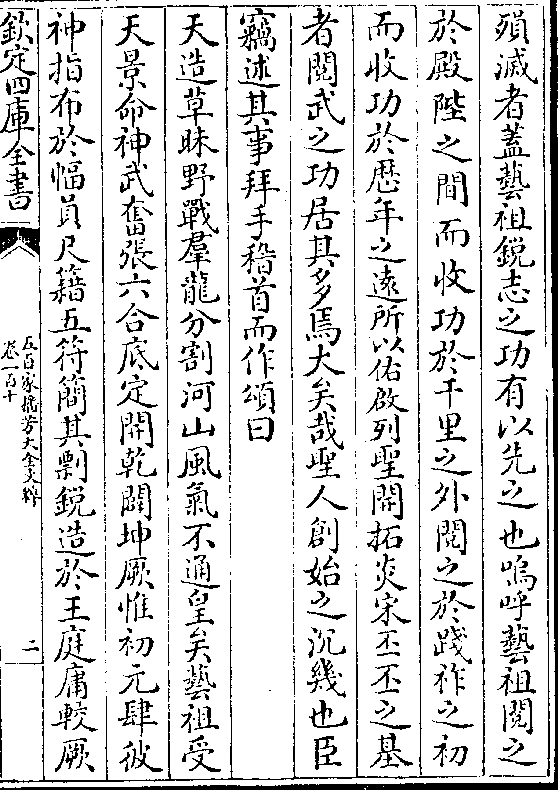 殞滅者葢藝祖鋭志之功有以先之也嗚呼藝祖閲之
於殿陛之間而收功於千里之外閲之於踐祚之初
而收功於歴年之遠所以佑啟列聖開拓炎宋丕丕之基
者閲武之功居其多焉大矣哉聖人創始之沉幾也臣
竊述其事拜手稽首而作頌曰
天造草昧野戰羣龍分割河山風氣不通皇矣藝祖受
天景命神武奮張六合底定開乾闢坤厥惟初元肆彼
神指布於幅員尺籍五符簡其剽鋭造於王庭庸較厥
欽定四庫全書
五百家播芳大全文粹
卷一百十
二